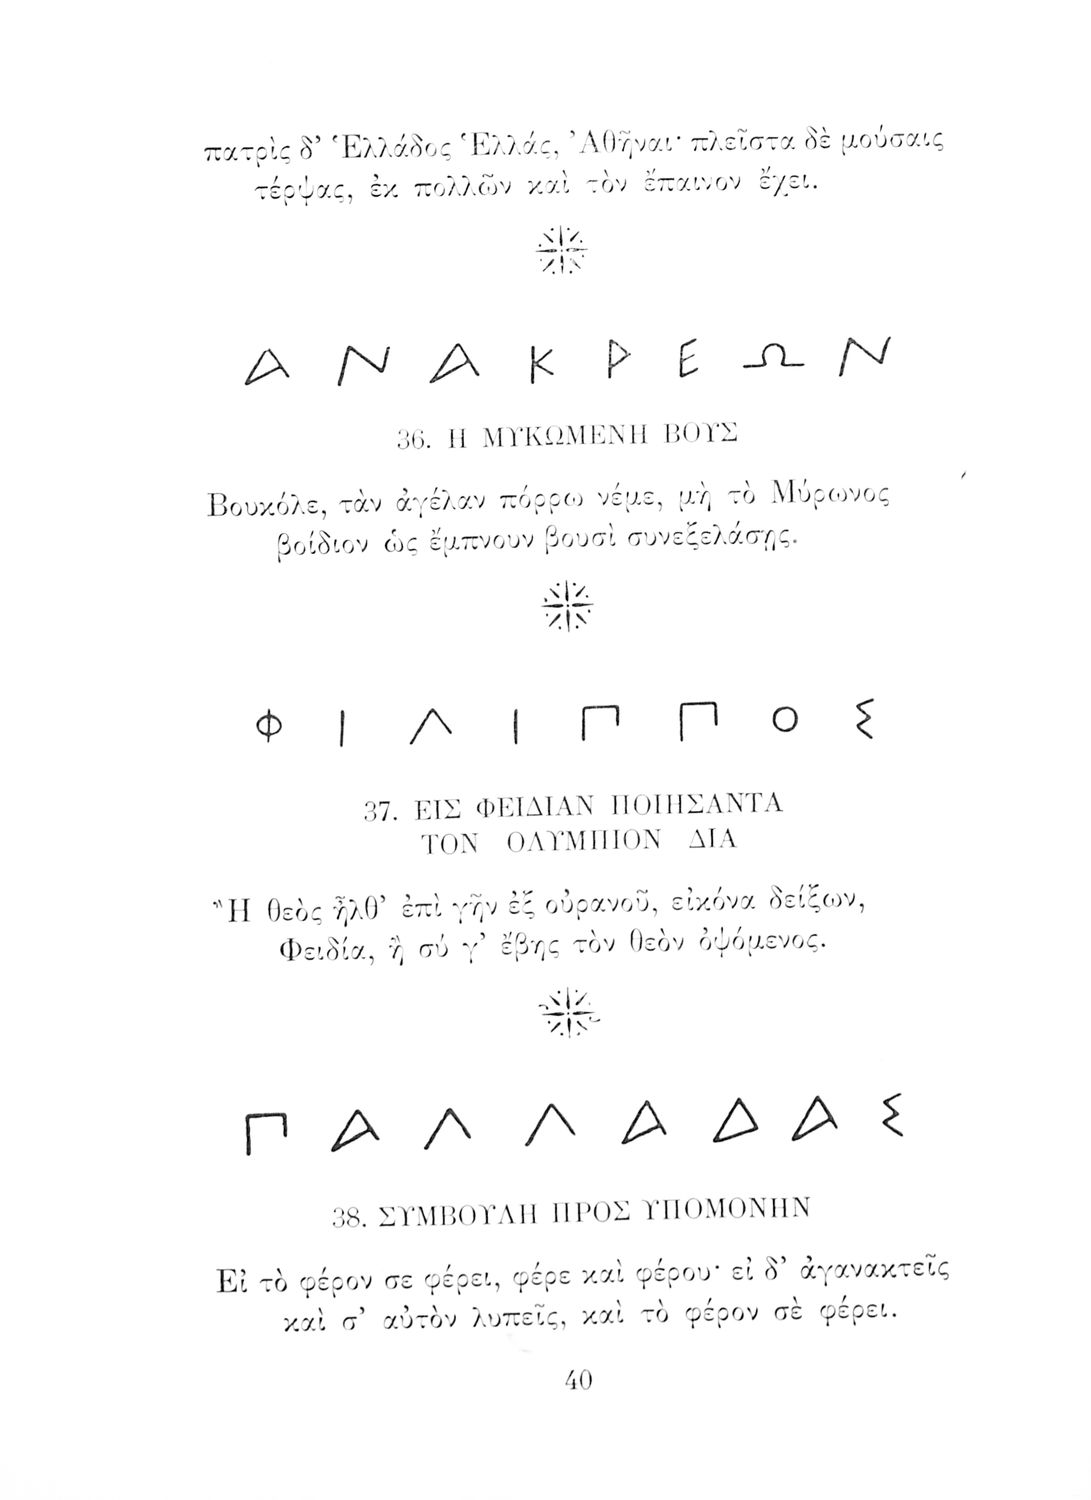 πατρὶς δ’ Ἑλλάδος Ἑλλάς, Ἀθῆναι· πλεῖστα δὲ μούσαις
τέρψας, ἐκ πολλῶν καὶ τὸν ἔπαινον ἔχει.
ΑΝΑΚΡΕΩΝ
36. Η ΜΥΚΩΜΕΝΗ ΒΟΥΣ
Βουκόλε, τὰν ἀγέλαν πόρρω νέμε, μὴ τὸ Μύρωνος
βοίδιον ὡς ἔμπνουν βουσὶ συνεξελάσῃς.
ΦΙΛΙΠΠΟΣ
37. ΕΙΣ ΦΕΙΔΙΑΝ ΠΟΙΗΣΑΝΤΑ
ΤΟΝ ΟΛΥΜΠΙΟΝ ΔΙΑ
Ἢ θεὸς ἦλθ’ ἐπὶ γῆν ἐξ οὐρανοῦ, εἰκόνα δείξων,
Φειδία, ἢ σύ γ’ ἔβης τὸν θεὸν ὀψόμενος.
ΠΑΛΛΑΔΑΣ
38. ΣΥΜΒΟΥΛΗ ΠΡΟΣ ΥΠΟΜΟΝΗΝ
Εἰ τὸ φέρον σε φέρει, φέρε καὶ φέρου· εἰ δ’ ἀγανακτεῖς
καὶ σ’ αὐτὸν λυπεῖς, καὶ τὸ φέρον σὲ φέρει.
40